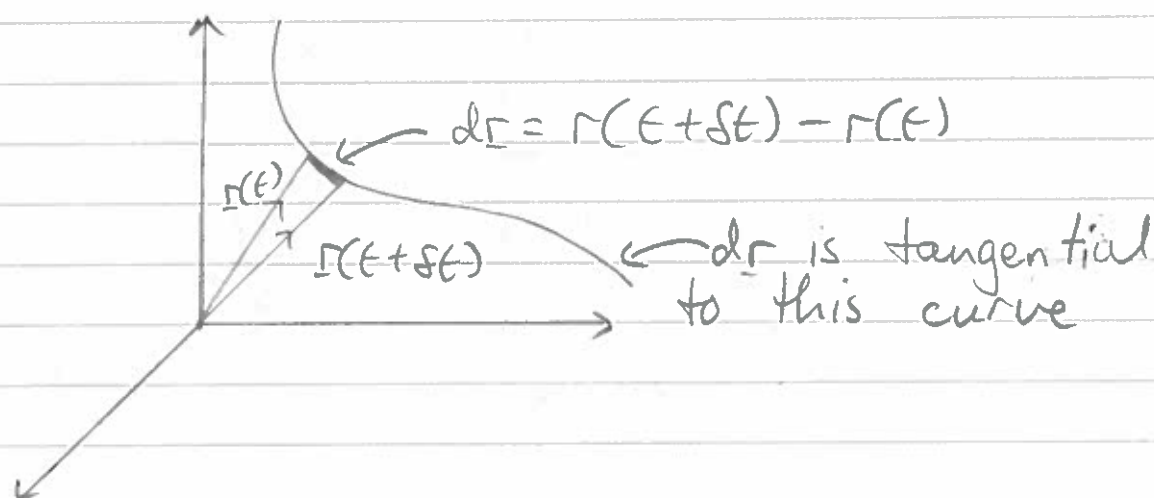 dr = r(t+δt) - r(t)
r(t)
r(t+δt)
dr is tangential
to this curve